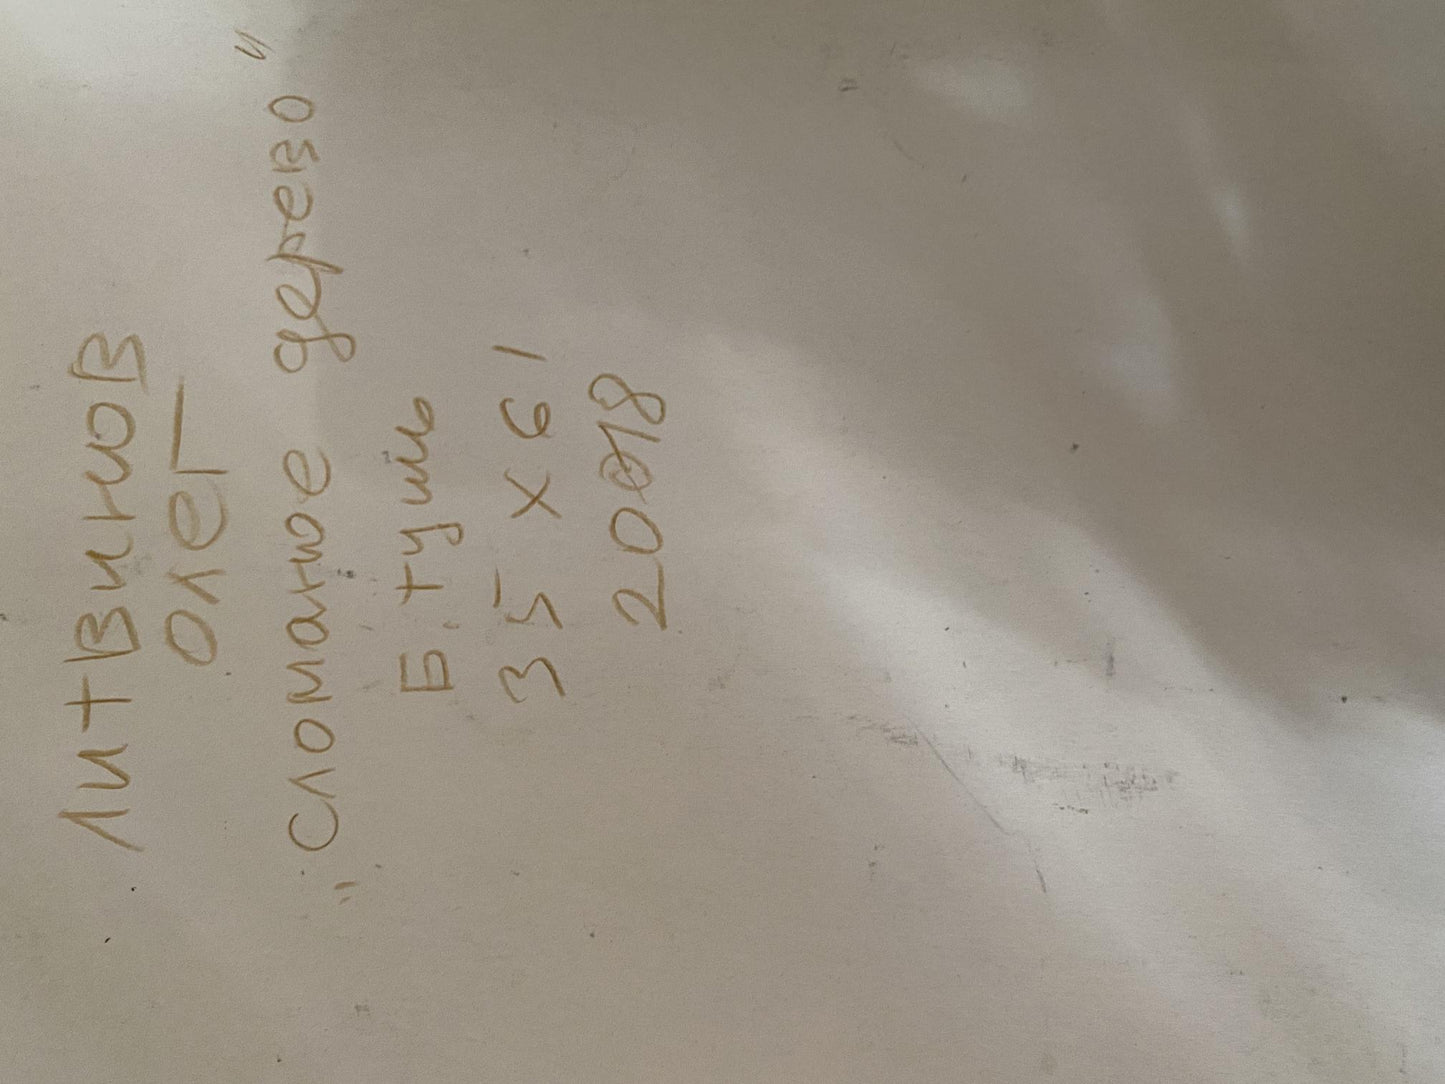 Литвинов
Олег
"Сломаное дерево"
Б. тушь
35 х 61
2018